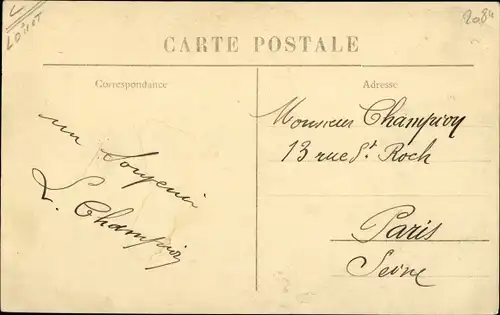 L
LOIRET
2084
CARTE POSTALE
Correspondance
Adresse
un Souvenir
L. Champion
Monsieur Champion
13 rue St Roch
Paris
Seine